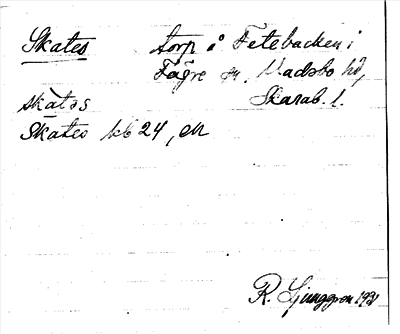 Skates torp å Fetebacken i
Fägre sn, Vadsbo hd,
Skarab. l.
skatəs
Skates kb 24, EM
R. Ljunggren 1931